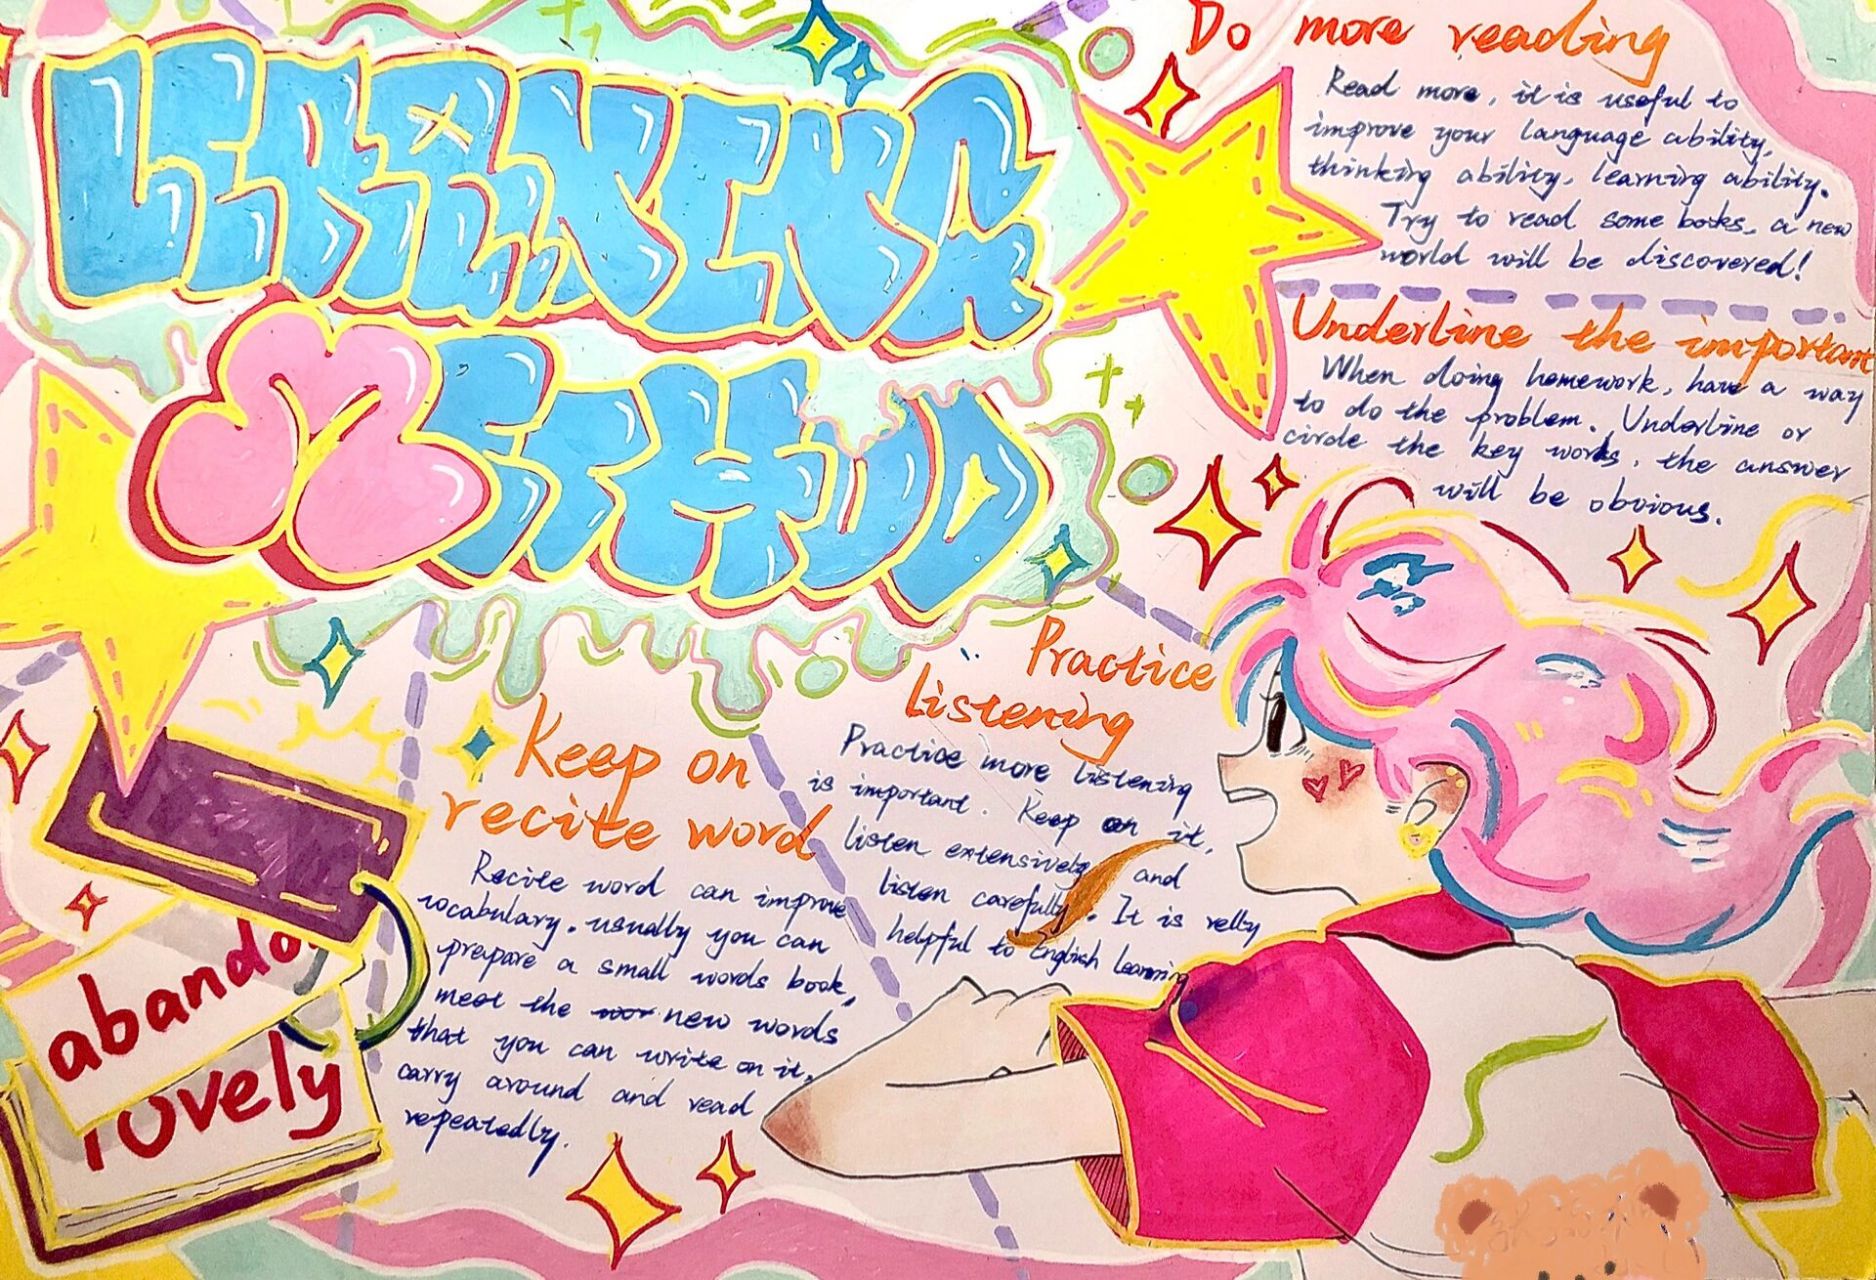 LERANING
METHUD
Do more reading
Read more, it is useful to
improve your language ability,
thinking ability, learning ability.
Try to read some books, a new
world will be discovered!
Underline the important
When doing homework, have a way
to do the problem. Underline or
circle the key works, the answer
will be obvious.
Practice
listening
Practice more listening
is important. Keep on it,
listen extensively and
listen carefully. It is relly
helpful to English learning
Keep on
recite word
Recite word can improve
vocabulary. usually you can
prepare a small words book,
meet the new words
that you can write on it,
carry around and read
repeatedly.
abando
lovely